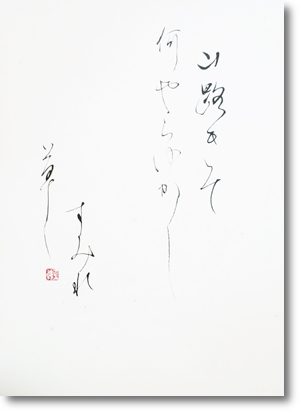 山路きて
何やらゆかし
すみれ
草